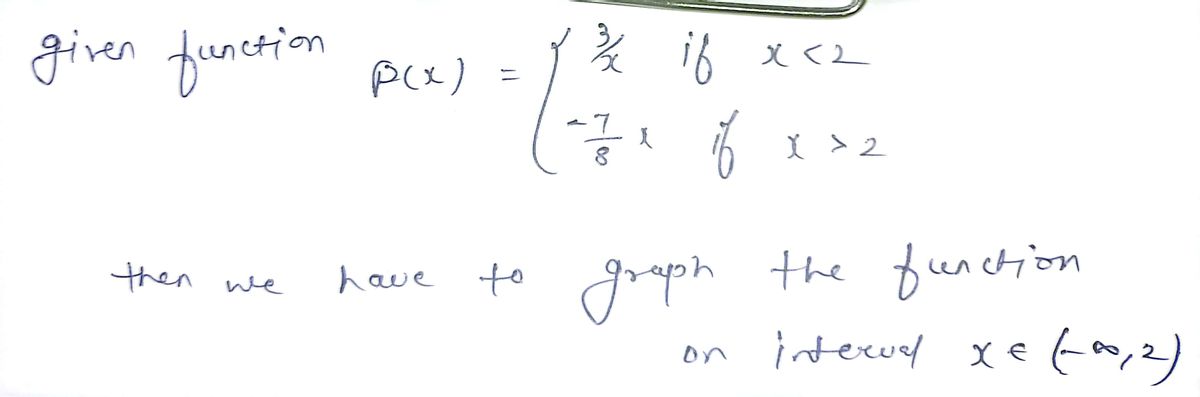 given function p(x) = { 3/x if x < 2
-7/8 x if x > 2
then we have to graph the function
on interval x ∈ (-∞, 2)